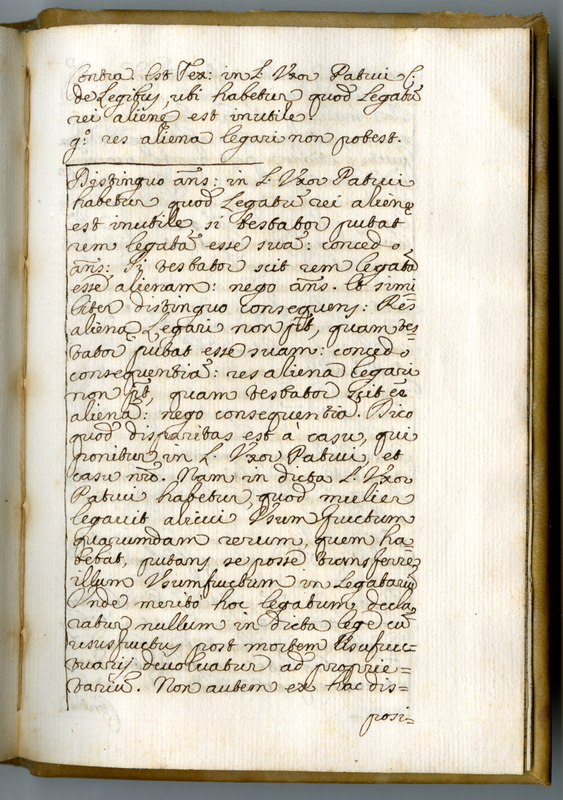 Contra. Est Tex: in L. Vxor Patrui C:
de Legibus, ubi habetur quod Legatū
rei alienę est inutile:
gͦ. res aliena legari non potest.
Distinguo añs: in L. Vxor Patrui
habetur quod Legatū rei alienę
est inutile, si testator putat
rem legatā esse suā: concedo
añs: si testator scit rem legatā
esse alienam: nego añs. Et simi
liter distinguo consequens: Rēs
aliena Legari non pt̄, quam tes=
tator putat esse suam: concedo
consequentiā: res aliena legari
non pt̄, quam testator scit eē
alienā: nego consequentia. Dico
quod disparitas est à casu, qui
ponitur in L. Vxor Patrui, et
casu nr̄o. Nam in dicta L. Vxor
Patrui habetur, quod mulier
legavit alicui Vsum fructum
quarumdam rerum, quem ha=
bebat, putans se posse transferre
illum Vsumfructum in Legatariū
Vnde merito hoc legatum decla
ratur nullum in dicta lege cū
ususfructus post mortem Usufruc=
tuarij devoluatur ad proprie=
tariū. Non autem ex hac dis=
posi=